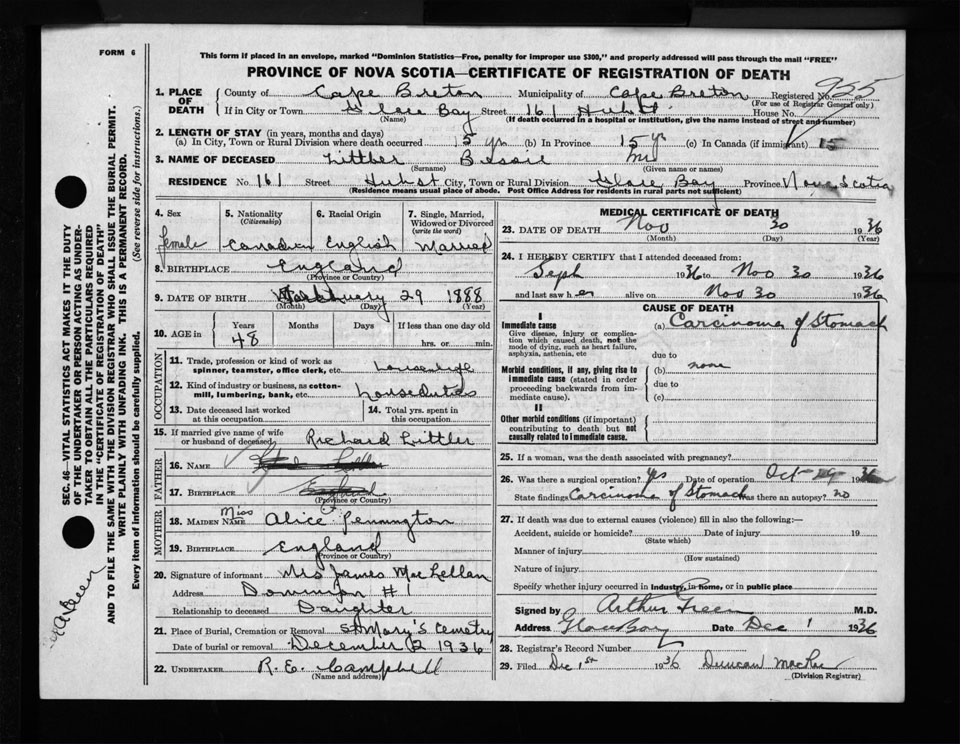 FORM 6
This form if placed in an envelope, marked "Dominion Statistics—Free, penalty for improper use $300," and properly addressed will pass through the mail "FREE"
PROVINCE OF NOVA SCOTIA—CERTIFICATE OF REGISTRATION OF DEATH
1. PLACE OF DEATH County of Cape Breton Municipality of Cape Breton Registered No. 955
(For use of Registrar General only)
If in City or Town Glace Bay Street 161 House No.
(Name) (If death occurred in a hospital or institution, give the name instead of street and number)
2. LENGTH OF STAY (in years, months and days)
(a) In City, Town or Rural Division where death occurred 15 yrs (b) In Province 15 yrs (c) In Canada (if immigrant) 15
3. NAME OF DECEASED Littler Bessie Mrs
(Surname) (Given name or names)
RESIDENCE No. 161 Street City, Town or Rural Division Glace Bay Province Nova Scotia
(Residence means usual place of abode. Post Office Address for residents in rural parts not sufficient)
4. Sex female
5. Nationality (Citizenship) Canadian
6. Racial Origin English
7. Single, Married, Widowed or Divorced (write the word) Married
8. BIRTHPLACE England
(Province or Country)
9. DATE OF BIRTH 29 1888
(Month) (Day) (Year)
10. AGE in Years Months Days If less than one day old
48 hrs. or min.
OCCUPATION
11. Trade, profession or kind of work as spinner, teamster, office clerk, etc. housewife
12. Kind of industry or business, as cotton-mill, lumbering, bank, etc. house duties
13. Date deceased last worked at this occupation
14. Total yrs. spent in this occupation
15. If married give name of wife or husband of deceased Richard Littler
FATHER
16. NAME
17. BIRTHPLACE England
(Province or Country)
MOTHER
18. MAIDEN NAME Miss Alice Pennington
19. BIRTHPLACE England
(Province or Country)
20. Signature of informant Mrs James MacLellan
Address Dominion #1
Relationship to deceased Daughter
21. Place of Burial, Cremation or Removal St Mary's Cemetry
Date of burial or removal December 2 1936
22. UNDERTAKER R. E. Campbell
(Name and address)
MEDICAL CERTIFICATE OF DEATH
23. DATE OF DEATH Nov 30 1936
(Month) (Day) (Year)
24. I HEREBY CERTIFY that I attended deceased from:
Sept 1936 to Nov 30 1936
and last saw her alive on Nov 30 1936
CAUSE OF DEATH
I
Immediate cause (a) Carcinoma of Stomach
Give disease, injury or complication which caused death, not the mode of dying, such as heart failure, asphyxia, asthenia, etc
due to
Morbid conditions, if any, giving rise to immediate cause (stated in order proceeding backwards from immediate cause). (b) none
due to
(c)
II
Other morbid conditions (if important) contributing to death but not causally related to immediate cause.
25. If a woman, was the death associated with pregnancy?
26. Was there a surgical operation? Yes Date of operation Oct 1936
State findings Carcinoma of Stomach Was there an autopsy? no
27. If death was due to external causes (violence) fill in also the following:—
Accident, suicide or homicide? Date of injury 19
(State which)
Manner of injury
(How sustained)
Nature of injury
Specify whether injury occurred in Industry, in home, or in public place
Signed by Arthur Green M.D.
Address Glace Bay Date Dec 1 1936
28. Registrar's Record Number
29. Filed Dec 1st 1936 Duncan MacRae
(Division Registrar)
SEC. 46—VITAL STATISTICS ACT MAKES IT THE DUTY
OF THE UNDERTAKER OR PERSON ACTING AS UNDER-
TAKER TO OBTAIN ALL THE PARTICULARS REQUIRED
IN THE "CERTIFICATE OF REGISTRATION OF DEATH"
AND TO FILE THE SAME WITH THE DIVISION REGISTRAR WHO SHALL ISSUE THE BURIAL PERMIT.
WRITE PLAINLY WITH UNFADING INK. THIS IS A PERMANENT RECORD.
Every item of information should be carefully supplied. (See reverse side for instructions.)